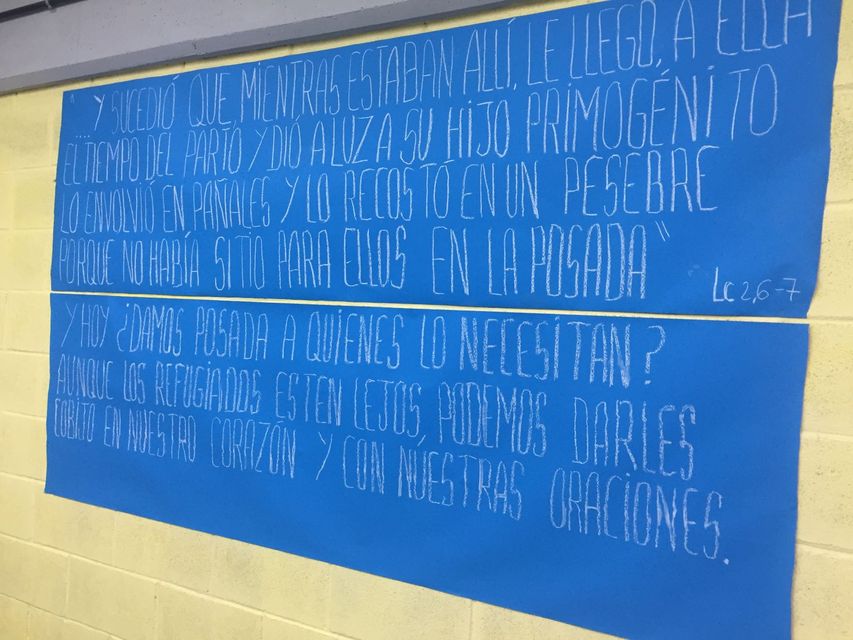 "...Y SUCEDIÓ QUE, MIENTRAS ESTABAN ALLÍ, LE LLEGÓ, A ELLA
EL TIEMPO DEL PARTO Y DIÓ A LUZ A SU HIJO PRIMOGÉNITO
LO ENVOLVIÓ EN PAÑALES Y LO RECOSTÓ EN UN PESEBRE
PORQUE NO HABÍA SITIO PARA ELLOS EN LA POSADA"
Lc 2,6-7
Y HOY ¿DAMOS POSADA A QUIENES LO NECESITAN?
AUNQUE LOS REFUGIADOS ESTEN LEJOS, PODEMOS DARLES
COBIJO EN NUESTRO CORAZÓN Y CON NUESTRAS ORACIONES.